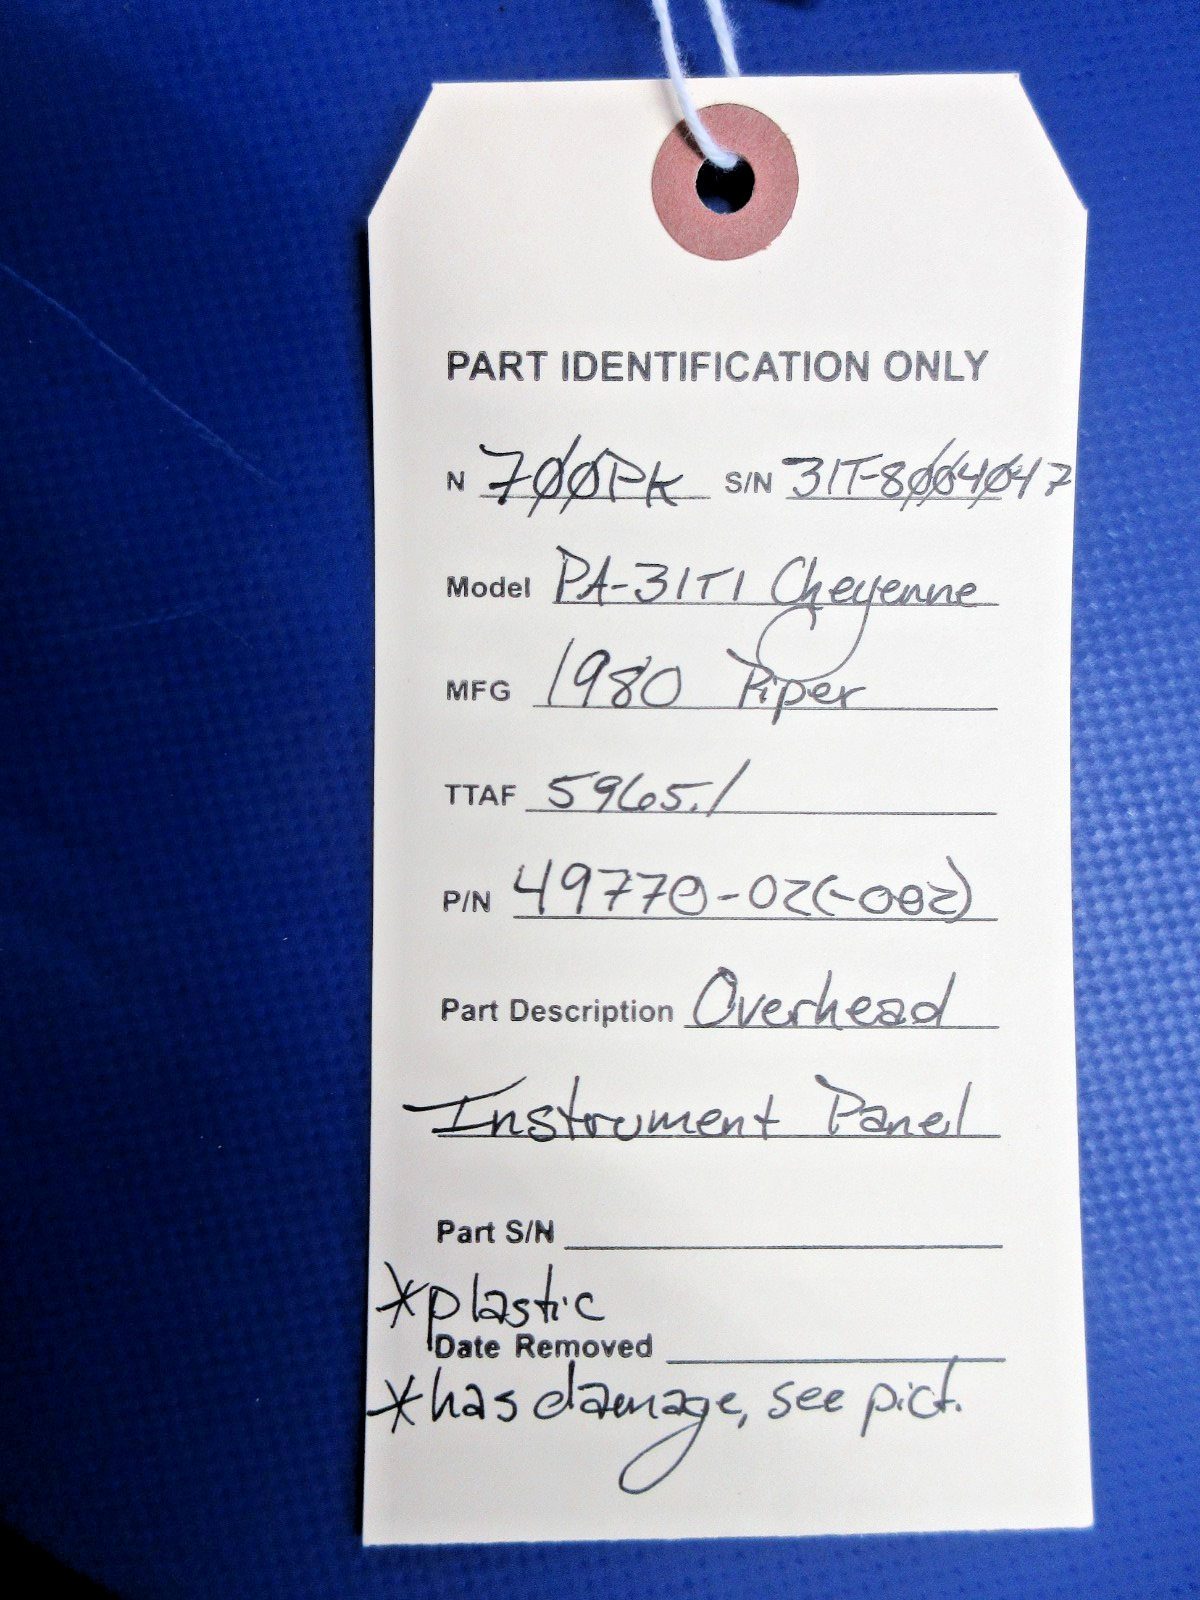 PART IDENTIFICATION ONLY
N 700PK S/N 31T-8004047
Model PA-31T1 Cheyenne
MFG 1980 Piper
TTAF 5965.1
P/N 49770-02(-002)
Part Description Overhead
Instrument Panel
Part S/N
*plastic
Date Removed
*has damage, see pict.